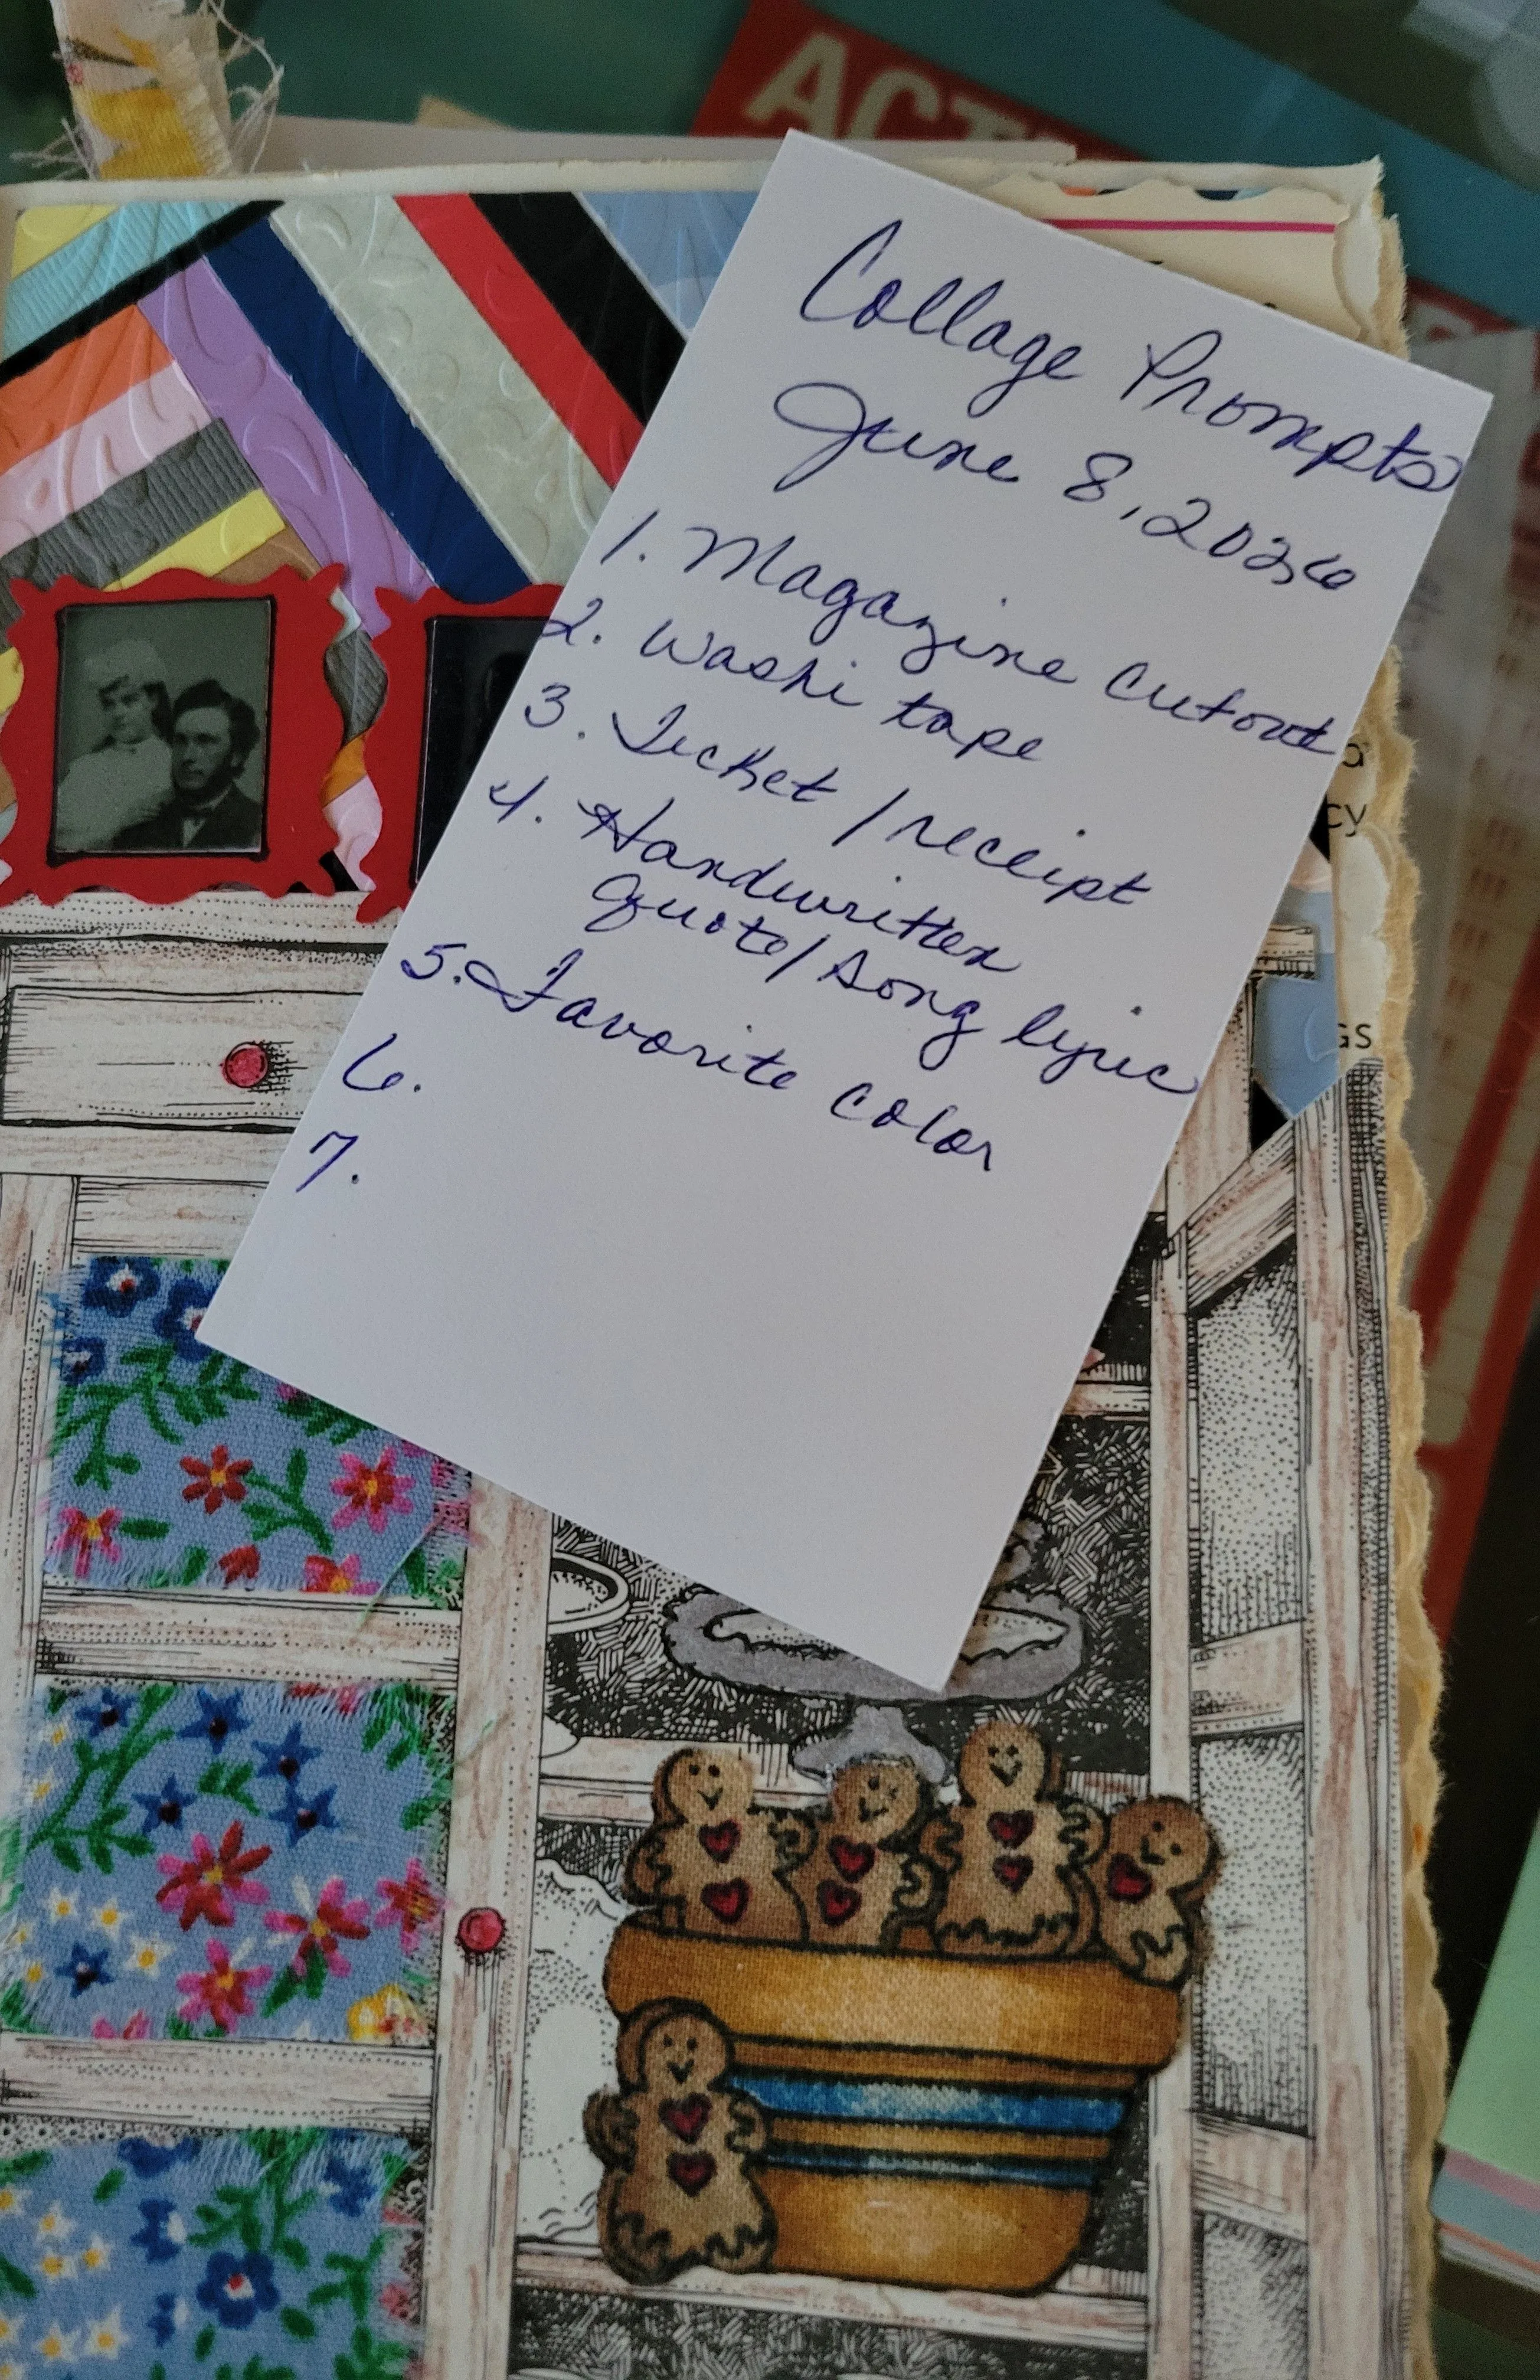 ACT
Collage Prompts
June 8, 2026
1. Magazine cutout
2. Washi tape
3. Ticket / receipt
4. Handwritten
quote / song lyric
5. Favorite color
6.
7.
a
cy
GS